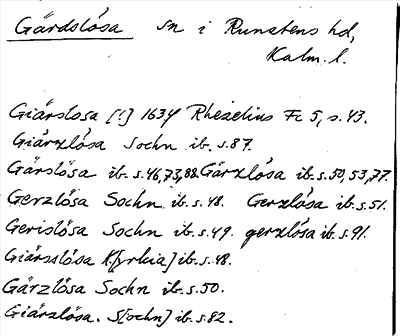 Gärdslösa sn i Runstens hd,
Kalm. l.
Giärslosa [!] 1634 Rhezelius Fc 5, s. 43.
Giärzlösa Sochn ib. s. 87.
Gärslösa ib. s. 46, 73, 88. Gärzlösa ib. s. 50, 53, 77.
Gerzlösa Sochn ib. s. 48. Gerzlösa ib. s. 51.
Gerislösa Sochn ib. s. 49. gerzlösa ib. s. 91.
Giärsslösa K[yrkia] ib. s. 48.
Gärzlösa Sochn ib. s. 50.
Giärzlösa. S[ochn] ib. s. 82.